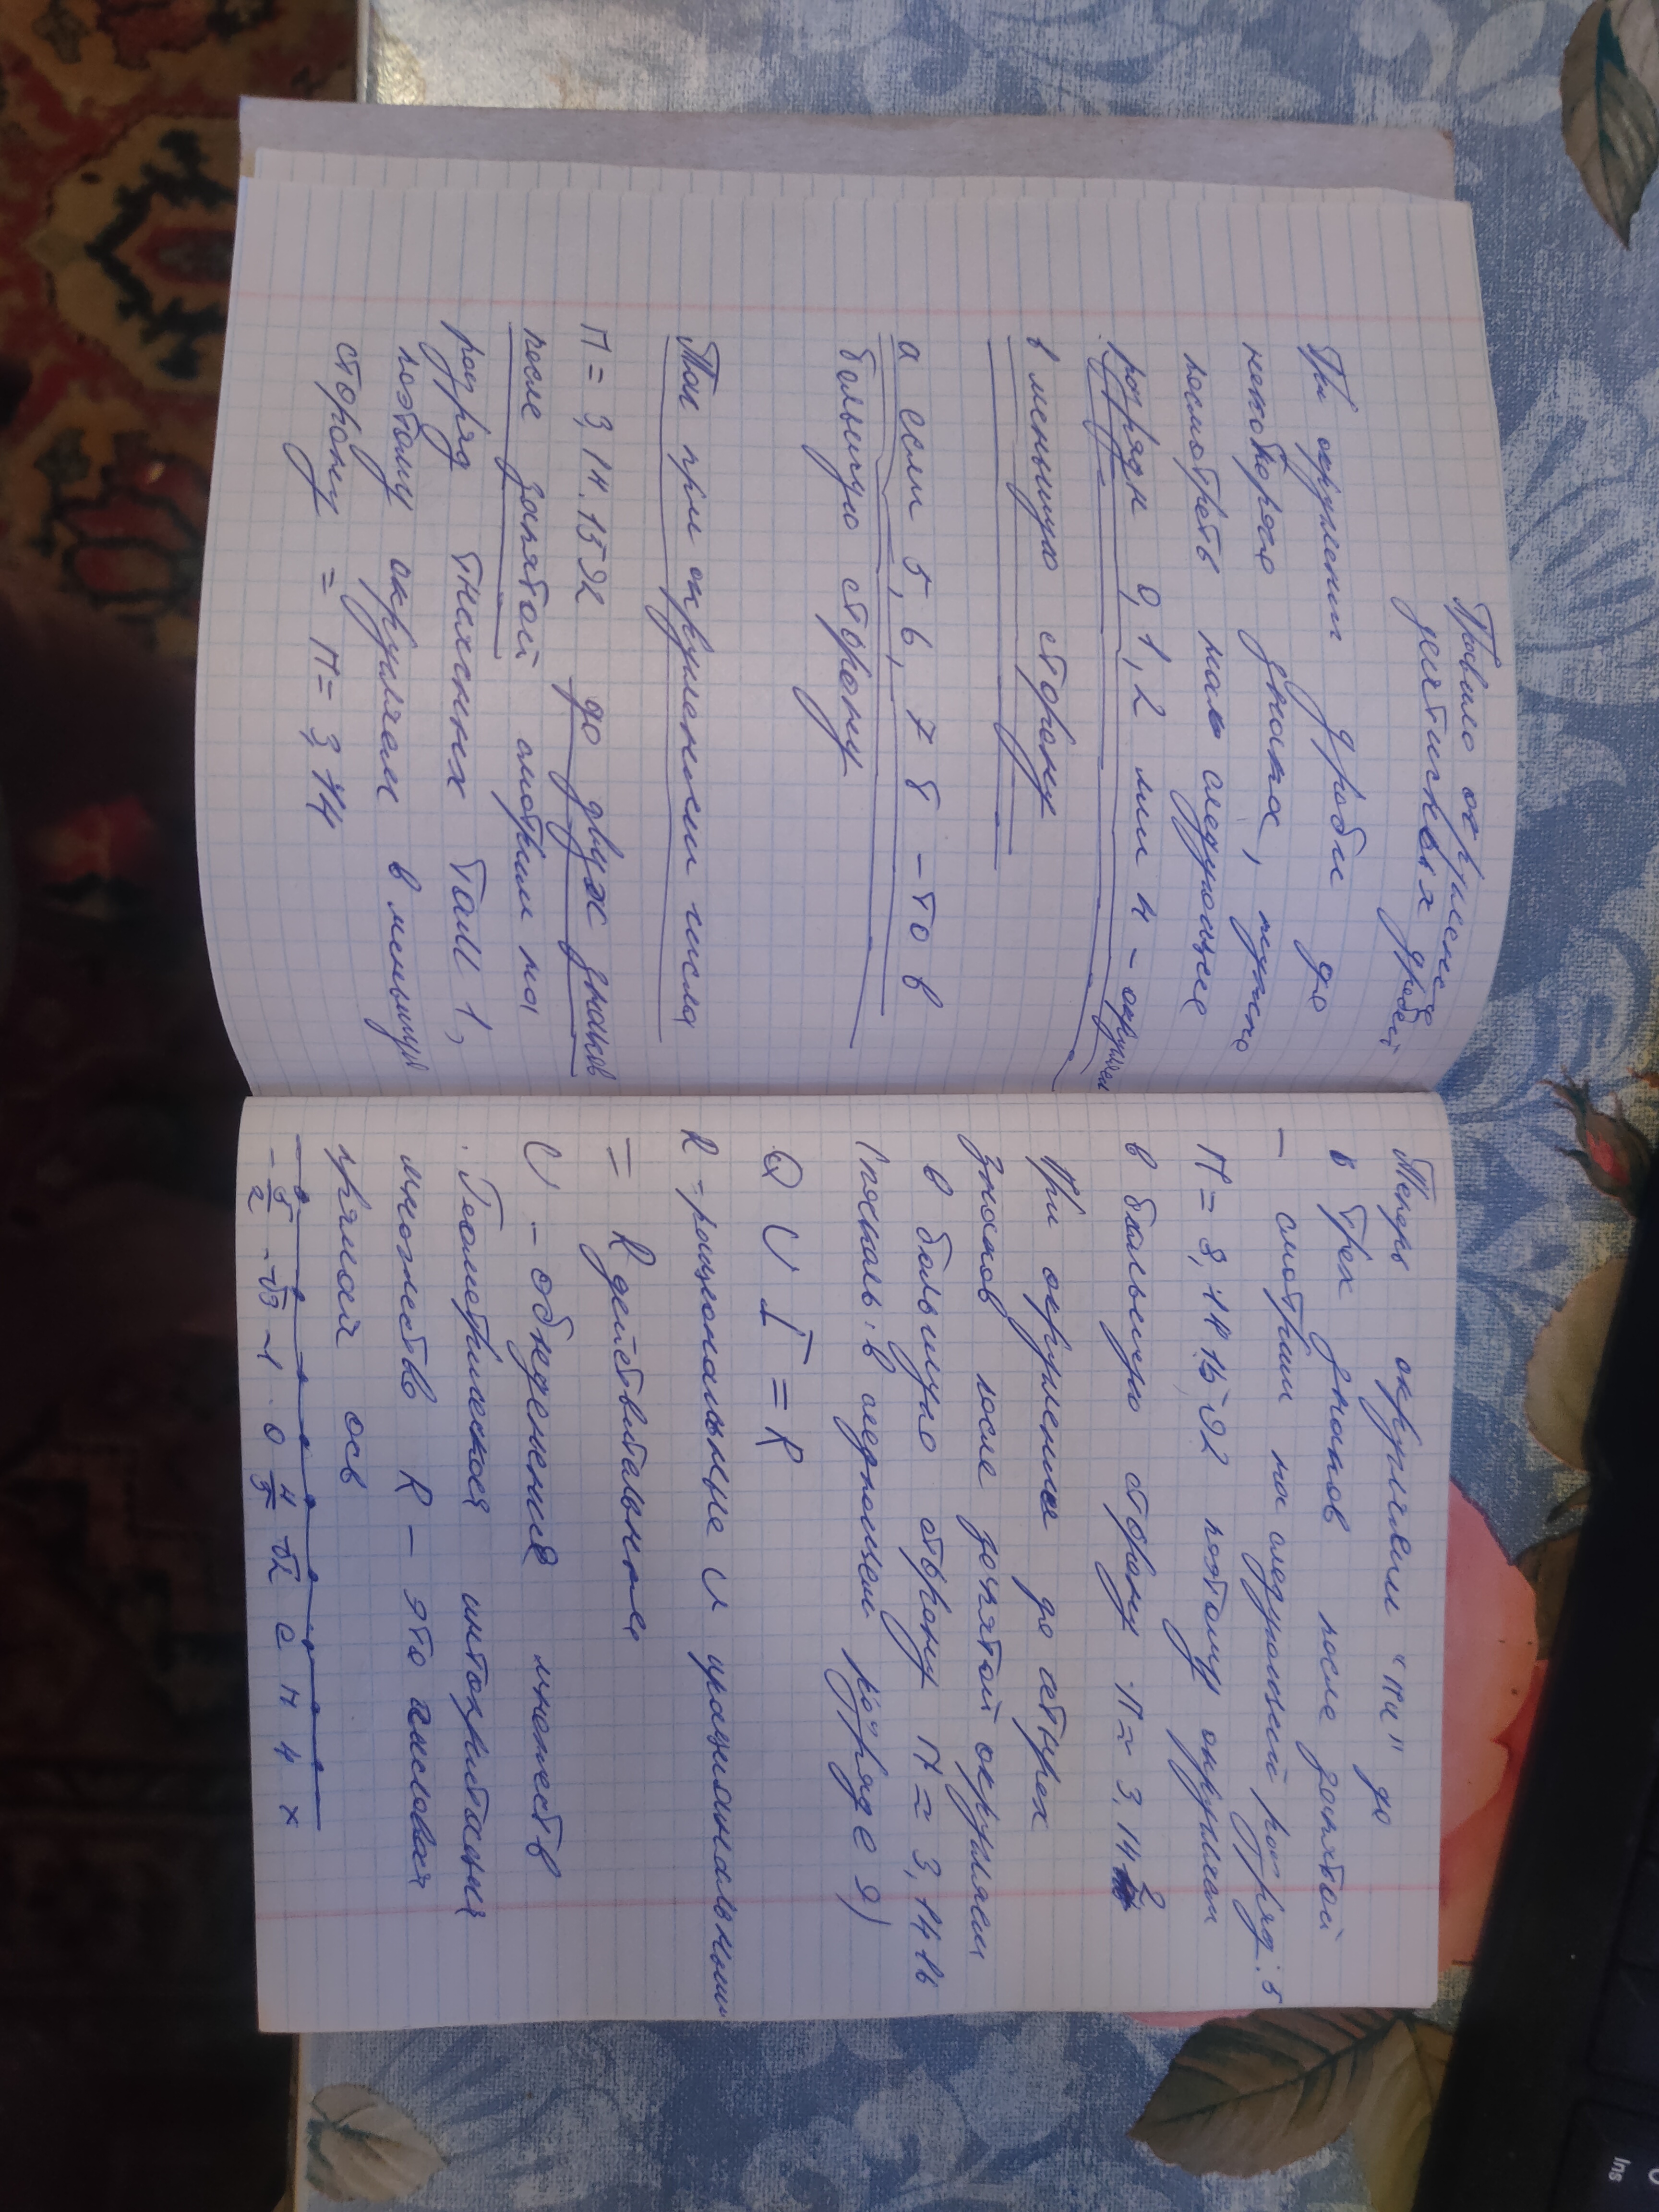 Правило округление
десятичных дробей
При округлении дроби до
некоторого знака, нужно
посмотреть на следующие
разряды 0, 1, 2 или 4 - округляем
в меньшую сторону
а если 5, 6, 7 8 - то в
большую сторону
Так при округлении числа
П = 3,14.1592 до двух знаков
после запятой смотрим на
разряд тысячных там 1,
поэтому округляем в меньшую
сторону = П = 3,14
Теперь округлим "пи" до
трех знаков после запятой
- смотрим на следующий разряд: 5
П = 3,14.15.92 поэтому округляем
в большую сторону П = 3,142
При округление до четырех
знаков после запятой округляем
в большую сторону П ≈ 3,1416
в следующем разряде 9)
Q ∪ I = R
R = рациональные ∪ иррациональными
= R действительные
∪ - объеденения множеств
Геометрическая интерпритация
множеств R - это числовая
прямая ось
-5/2 -√3 -1 0 4/5 √2 e П 4 x
Ins